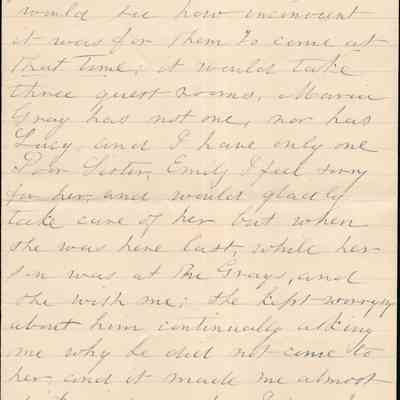 would see how inconvient
it was for them to come at
that time, it would take
three guest rooms, Maria
Gray has not one, nor has
Lucy, and I have only one
Poor Sister, Emily I feel sorry
for her, and would gladly
take care of her but when
she was here last, while her
son was at the Grays, and
she with me; she kept worrying
about him continually asking
me why he did not come to
her, and it made me almost